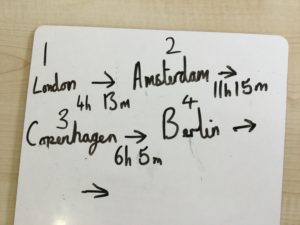 1 2
London → Amsterdam →
4h 13m 11h 15m
3 4
Copenhagen → Berlin →
6h 5m
→